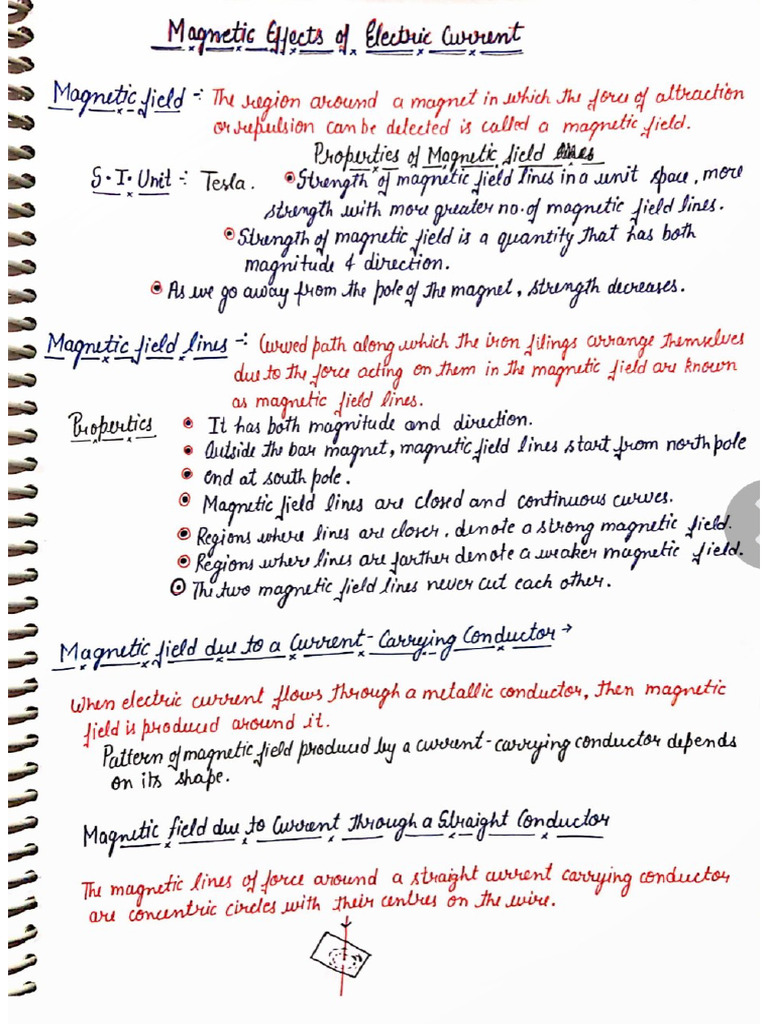 Magnetic Effects of Electric Current
Magnetic field -: The region around a magnet in which the force of attraction
or repulsion can be detected is called a magnetic field.
Properties of Magnetic field lines
S.I. Unit -: Tesla. Strength of magnetic field lines in a unit space, more
strength with more greater no. of magnetic field lines.
Strength of magnetic field is a quantity that has both
magnitude & direction.
As we go away from the pole of the magnet, strength decreases.
Magnetic field lines -: Curved path along which the iron filings arrange themselves
due to the force acting on them in the magnetic field are known
as magnetic field lines.
Properties • It has both magnitude and direction.
• Outside the bar magnet, magnetic field lines start from north pole
• end at south pole.
• Magnetic field lines are closed and continuous curves.
• Regions where lines are closer, denote a strong magnetic field.
• Regions where lines are farther denote a weaker magnetic field.
• The two magnetic field lines never cut each other.
Magnetic field due to a Current-Carrying Conductor →
When electric current flows through a metallic conductor, then magnetic
field is produced around it.
Pattern of magnetic field produced by a current-carrying conductor depends
on its shape.
Magnetic field due to Current through a Straight Conductor
The magnetic lines of force around a straight current carrying conductor
are concentric circles with their centres on the wire.